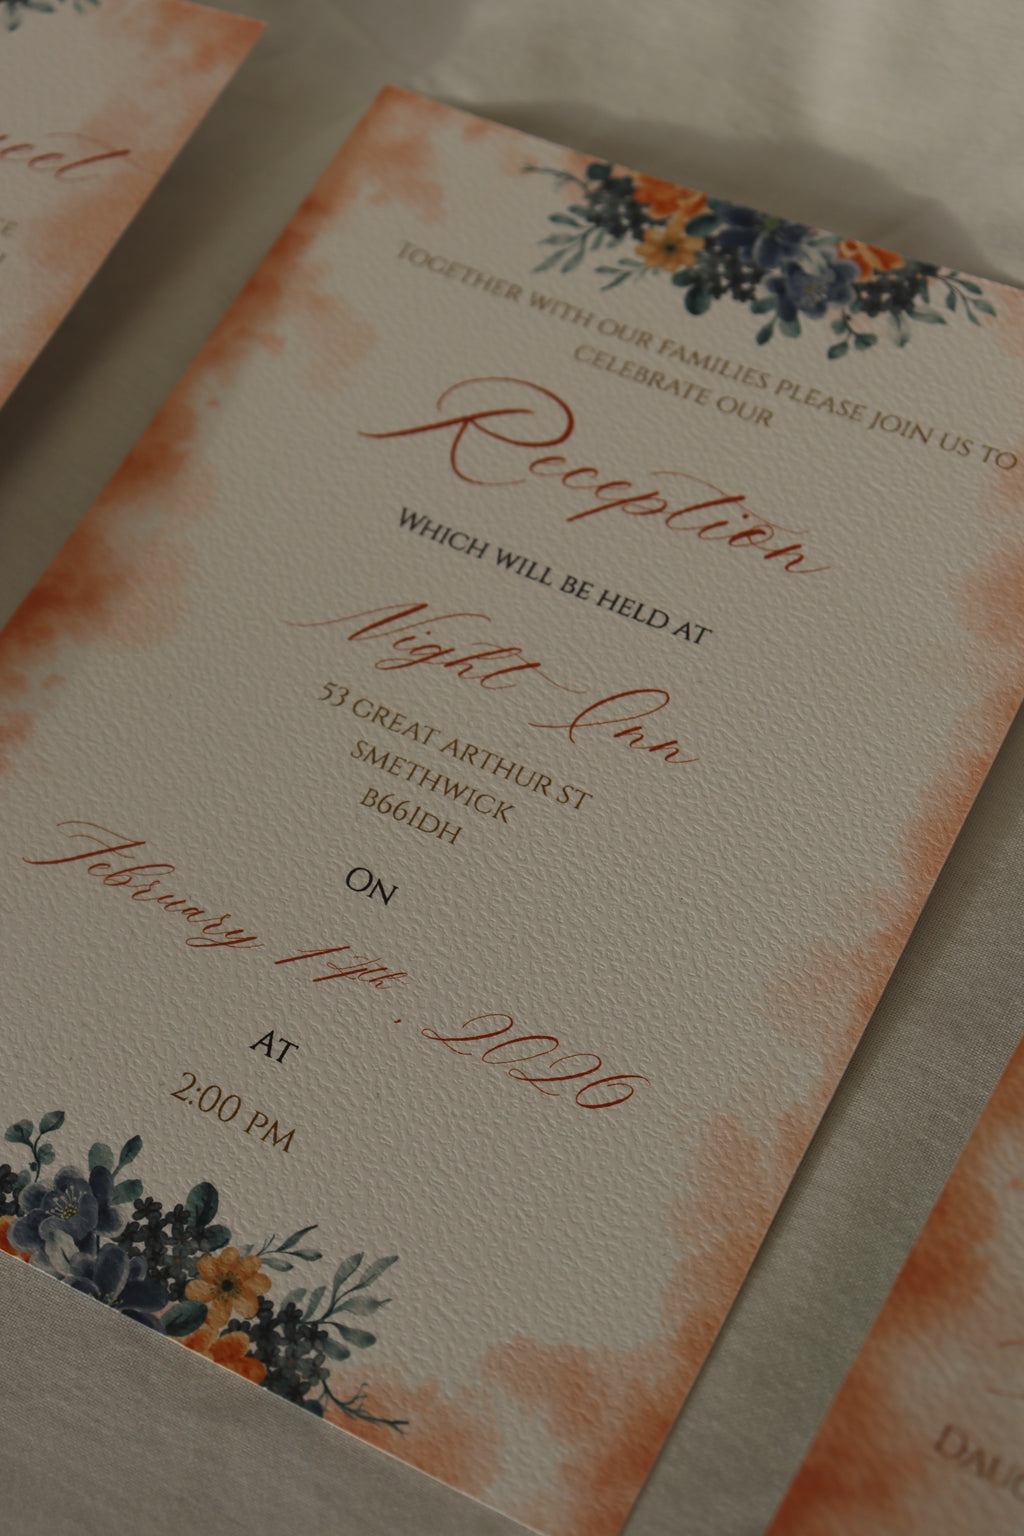 TOGETHER WITH OUR FAMILIES PLEASE JOIN US TO
CELEBRATE OUR
Reception
WHICH WILL BE HELD AT
Night Inn
53 GREAT ARTHUR ST
SMETHWICK
B661DH
ON
February 14th, 2026
AT
2:00 PM